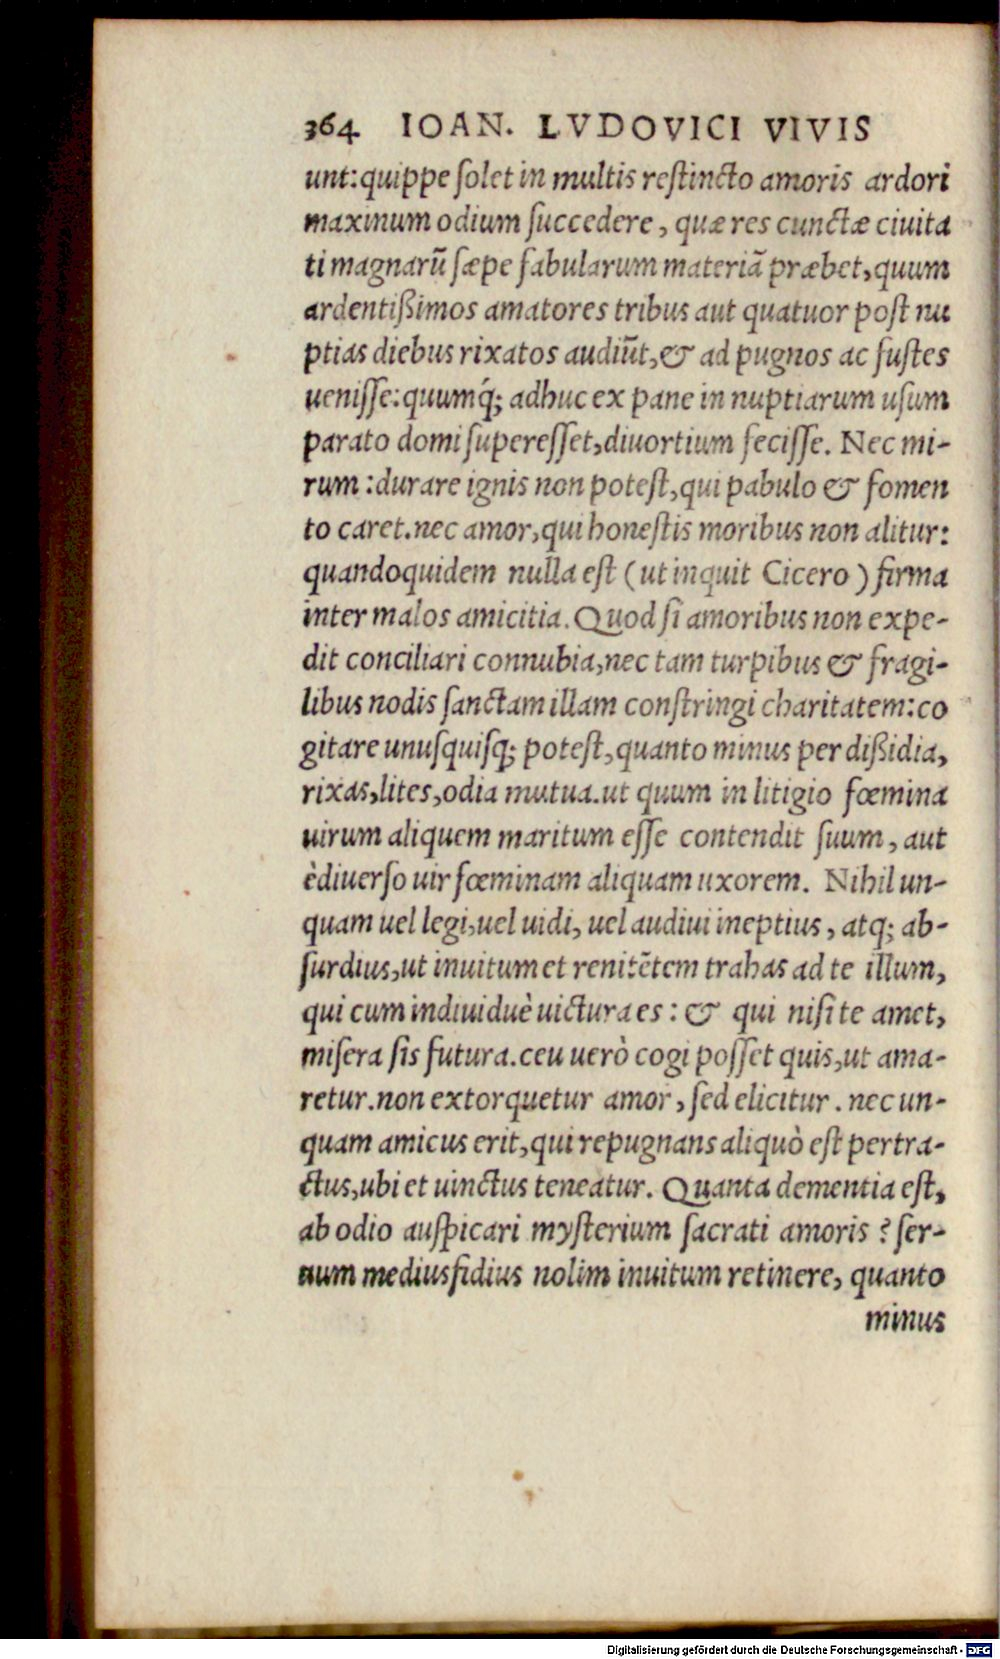 364 IOAN. LVDOVICI VIVIS
unt: quippe ſolet in multis reſtincto amoris ardori
maximum odium ſuccedere, quæ res cunctæ ciuita
ti magnarū ſæpe fabularum materiā præbet, quum
ardentiſsimos amatores tribus aut quatuor poſt nu
ptias diebus rixatos audiūt, & ad pugnos ac fuſtes
ueniſſe: quumq́; adhuc ex pane in nuptiarum uſum
parato domi ſupereſſet, diuortium feciſſe. Nec mi-
rum: durare ignis non poteſt, qui pabulo & fomen
to caret. nec amor, qui honeſtis moribus non alitur:
quandoquidem nulla eſt (ut inquit Cicero) firma
inter malos amicitia. Quod ſi amoribus non expe-
dit conciliari connubia, nec tam turpibus & fragi-
libus nodis ſanctam illam conſtringi charitatem: co
gitare unuſquiſq; poteſt, quanto minus per diſsidia,
rixas, lites, odia mutua. ut quum in litigio fœmina
uirum aliquem maritum eſſe contendit ſuum, aut
èdiuerſo uir fœminam aliquam uxorem. Nihil un-
quam uel legi, uel uidi, uel audiui ineptius, atq; ab-
ſurdius, ut inuitum et renitētem trahas ad te illum,
qui cum indiuiduè uictura es: & qui niſi te amet,
miſera ſis futura. ceu uerò cogi poſſet quis, ut ama-
retur. non extorquetur amor, ſed elicitur. nec un-
quam amicus erit, qui repugnans aliquò eſt pertra-
ctus, ubi et uinctus teneatur. Quanta dementia eſt,
ab odio auſpicari myſterium ſacrati amoris? ſer-
uum mediusfidius nolim inuitum retinere, quanto
minus
Digitalisierung gefördert durch die Deutsche Forschungsgemeinschaft - DFG